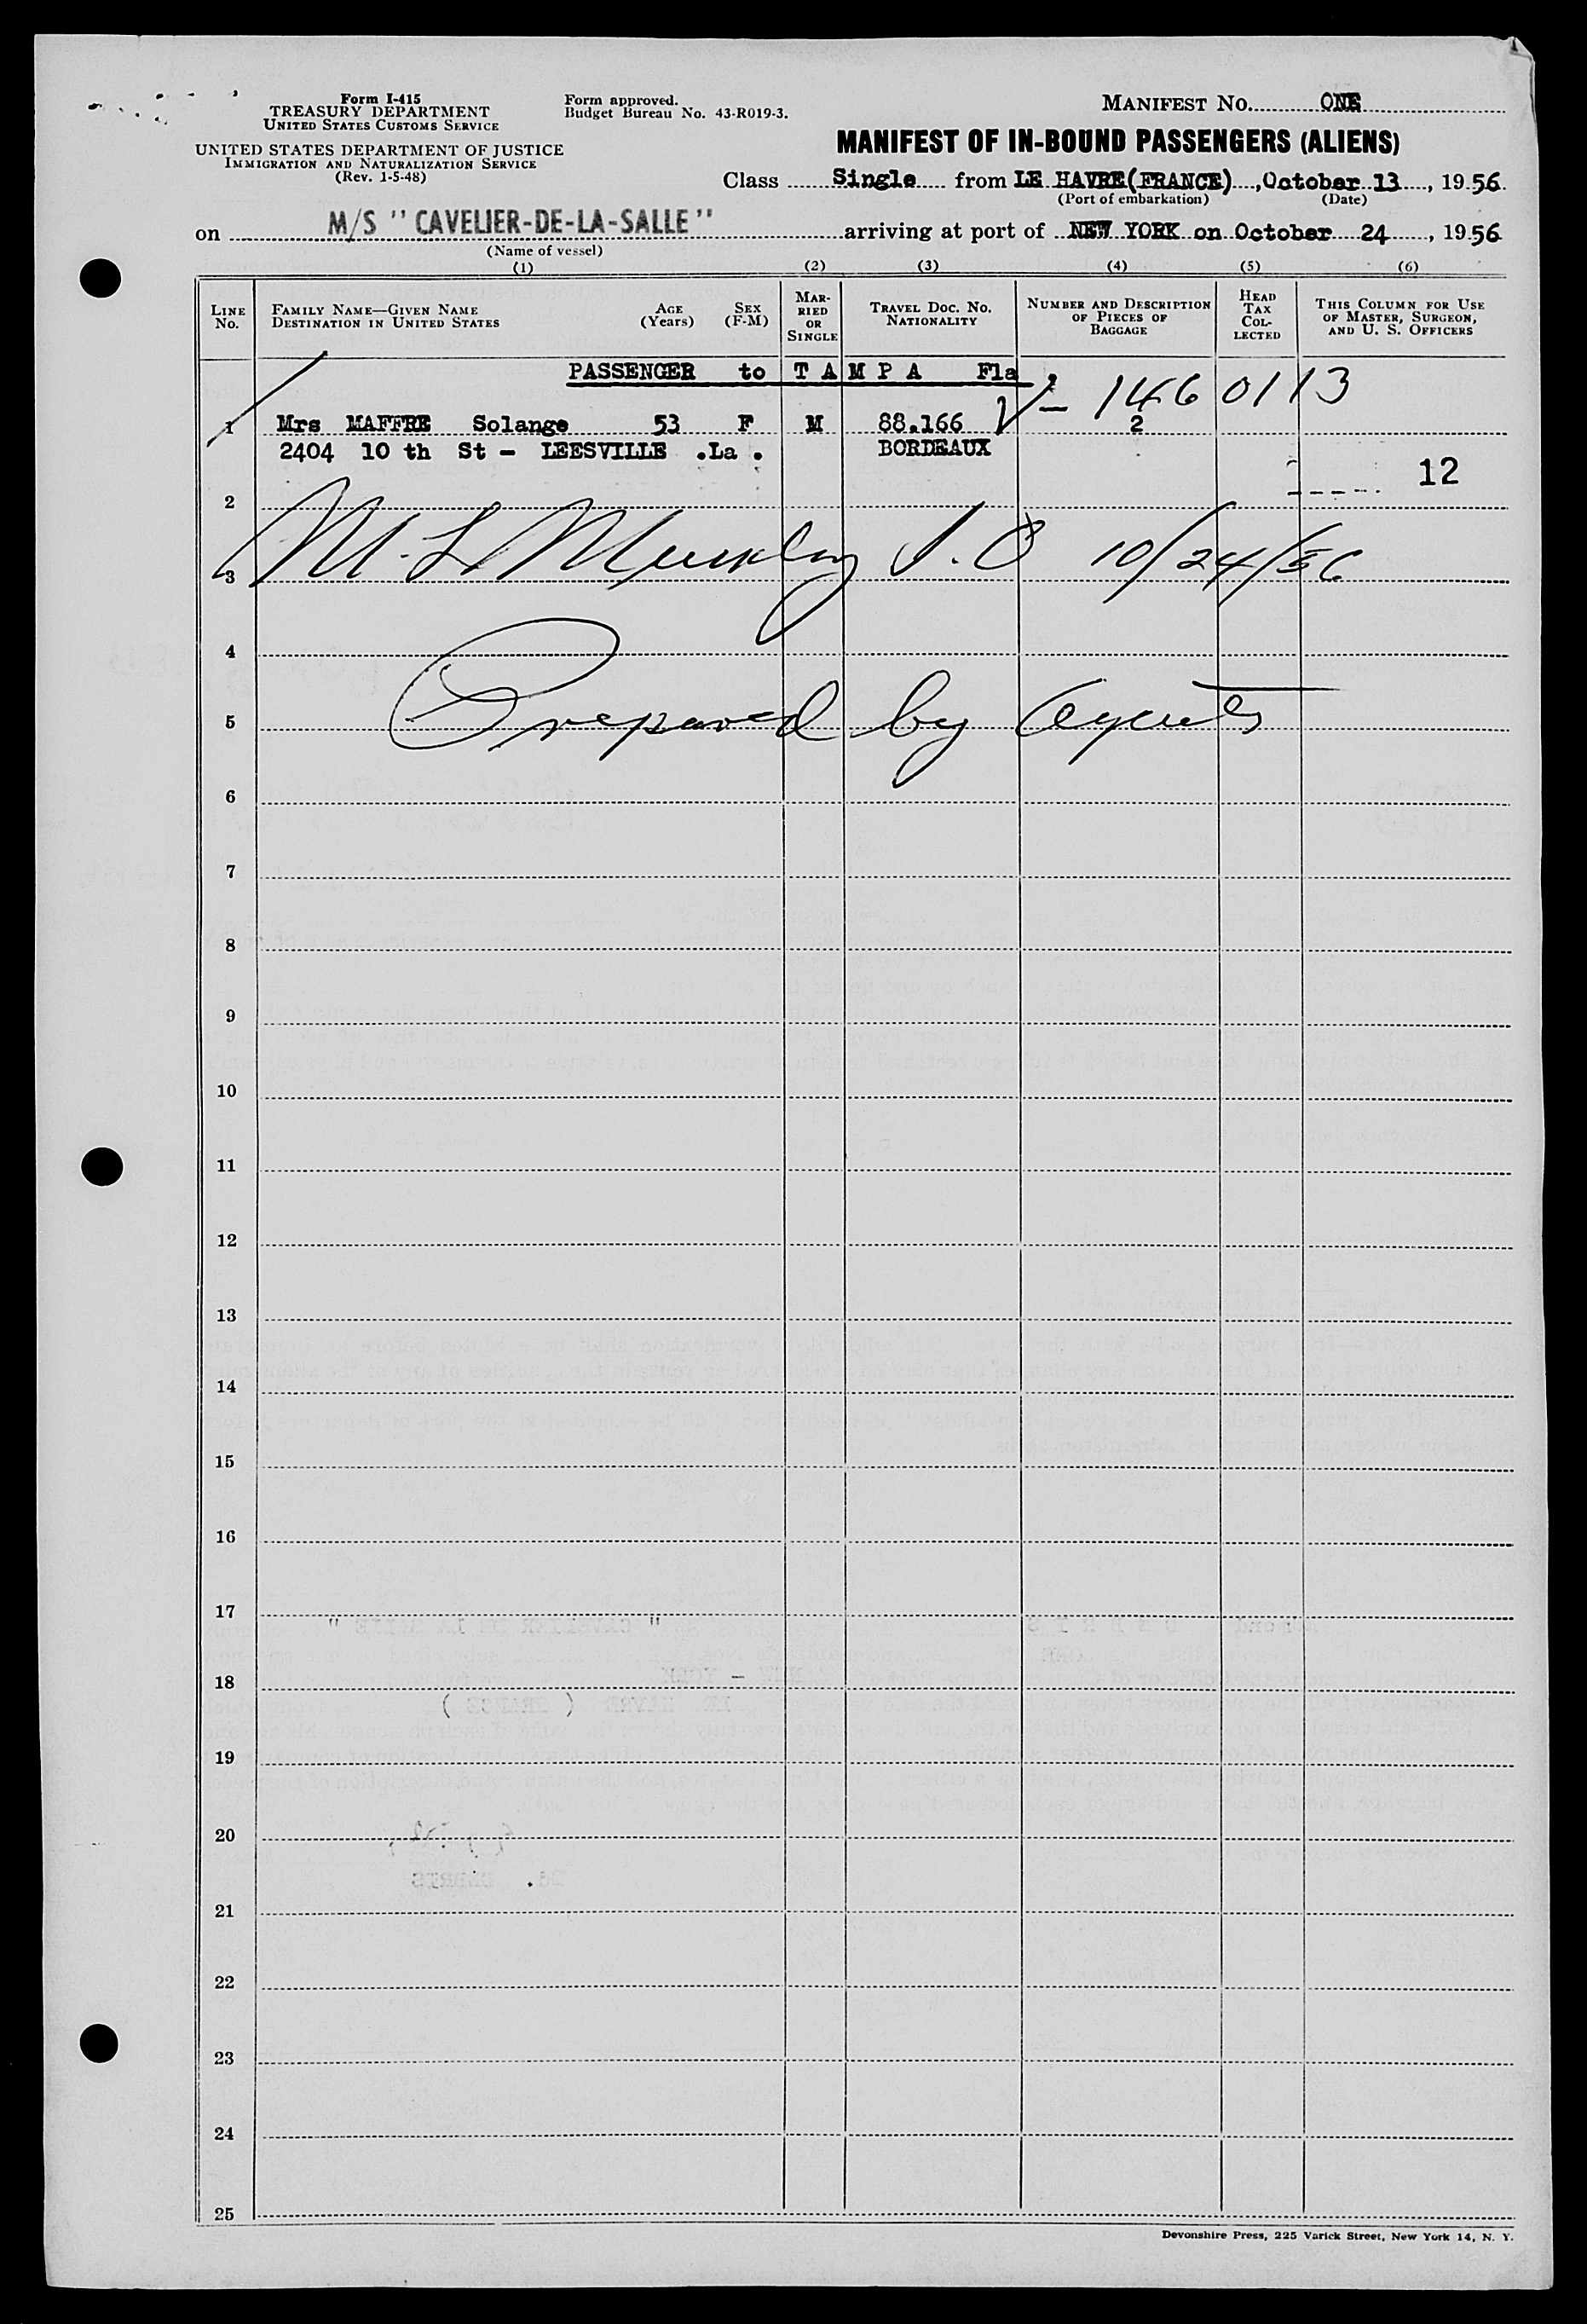 Form I-415
TREASURY DEPARTMENT
UNITED STATES CUSTOMS SERVICE
UNITED STATES DEPARTMENT OF JUSTICE
IMMIGRATION AND NATURALIZATION SERVICE
(Rev. 1-5-48)
Form approved.
Budget Bureau No. 43-R019-3.
MANIFEST NO. ONE
MANIFEST OF IN-BOUND PASSENGERS (ALIENS)
Class Single from LE HAVRE(FRANCE), October 13, 1956.
(Port of embarkation) (Date)
on M/S "CAVELIER-DE-LA-SALLE" arriving at port of NEW YORK on October 24, 1956
(Name of vessel)
(1) (2) (3) (4) (5) (6)
LINE No. FAMILY NAME—GIVEN NAME DESTINATION IN UNITED STATES AGE (Years) SEX (F-M) MARRIED OR SINGLE TRAVEL DOC. NO. NATIONALITY NUMBER AND DESCRIPTION OF PIECES OF BAGGAGE HEAD TAX COLLECTED THIS COLUMN FOR USE OF MASTER, SURGEON, AND U. S. OFFICERS
PASSENGER to T A M P A Fla,
- 1460113
1 Mrs MAFFRE Solange 53 F M 88.166 2
2404 10 th St - LEESVILLE .La . BORDEAUX
12
2
3 M. L Murphy I.O 10/24/56
4
5 Prepared by Agents
6
7
8
9
10
11
12
13
14
15
16
17
18
19
20
21
22
23
24
25
Devonshire Press, 225 Varick Street, New York 14, N. Y.